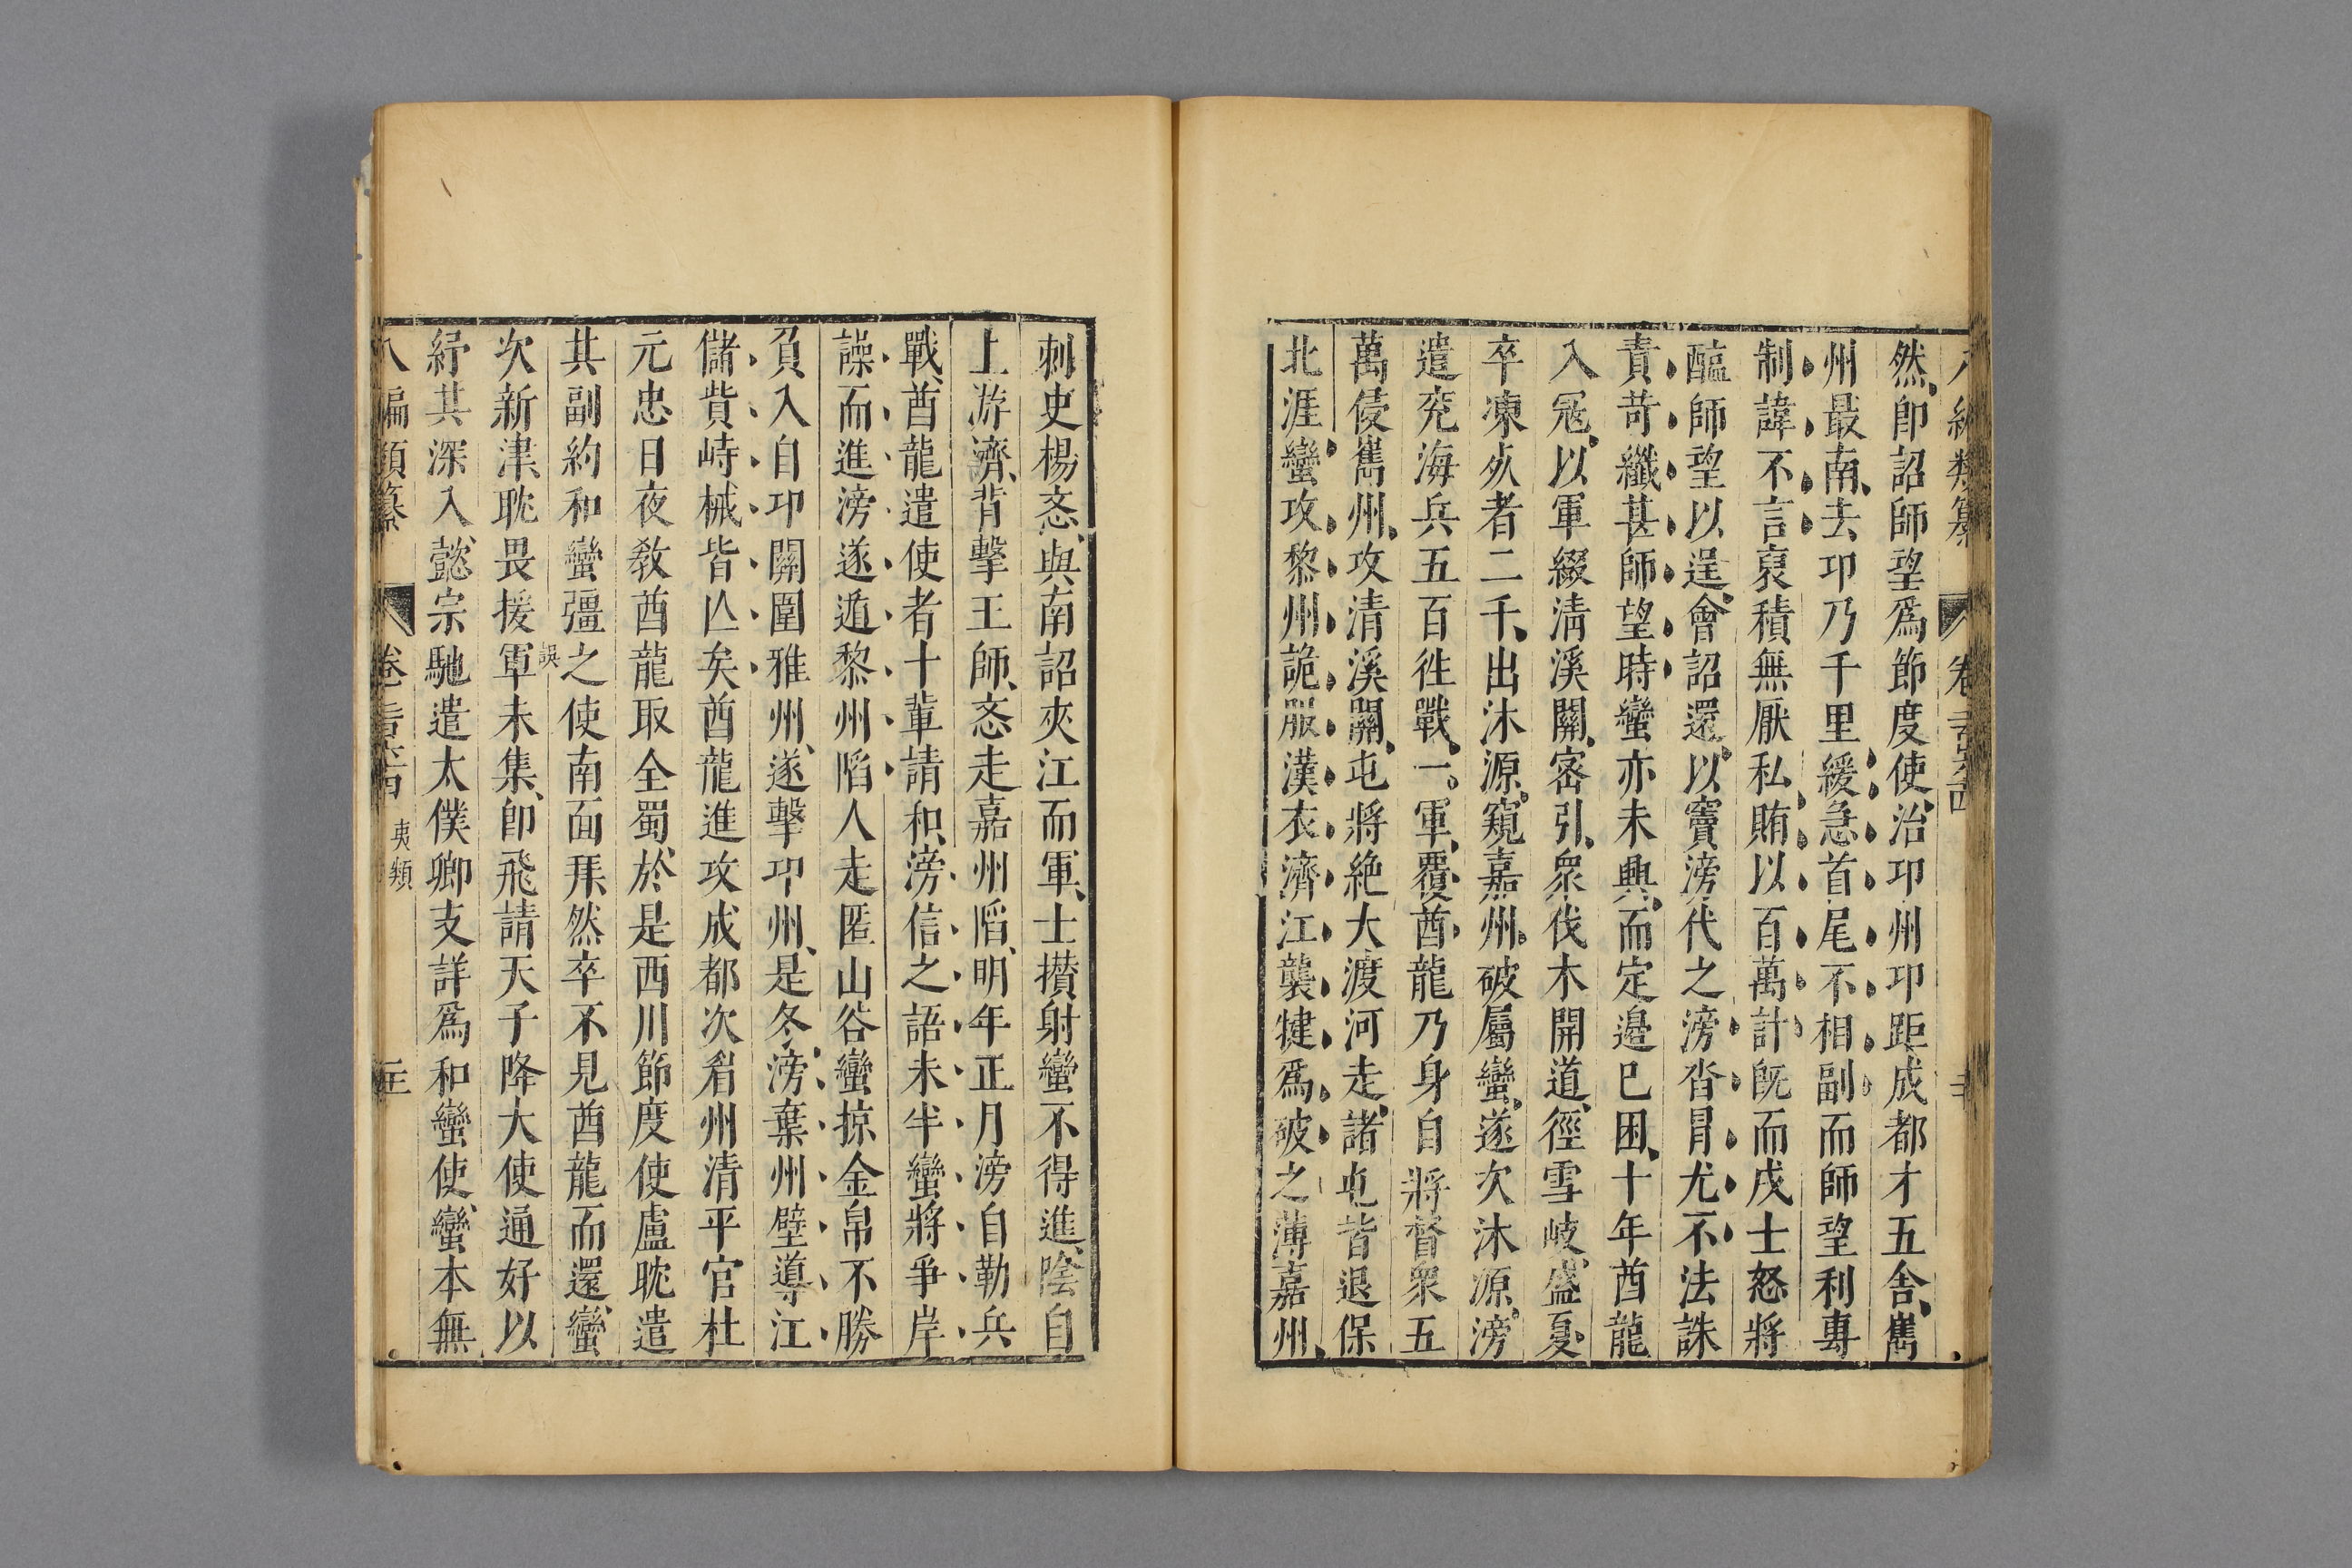 然即詔師望爲節度使治卭州卭距成都才五舍巂
州最南去卭乃千里緩急首尾不相副而師望利專
制諱不言裒積無厭私賄以百萬計旣而戍士怒將
醢師望以逞會詔還以竇滂代之滂沓冒尤不法誅
責苛纖甚師望時蠻亦未興而定邊已困十年酋龍
入冦以軍綴淸溪關宻引衆伐木開道徑雪岐盛夏
卒凍死者二千出沐源窺嘉州破屬蠻遂次沐源滂
遣兖海兵五百徃戰一軍覆酋龍乃身自將督衆五
萬侵巂州攻清溪關屯將絶大渡河走諸屯皆退保
北涯蠻攻黎州詭服漢衣濟江襲犍爲破之薄嘉州
刺史楊忞與南詔夾江而軍士攅射蠻不得進陰自
上游濟背擊王師忞走嘉州陷明年正月滂自勒兵
戰酋龍遣使者十輩請和滂信之語未半蠻將爭岸
譟而進滂遂遁黎州陷人走匿山谷蠻掠金帛不勝
負入自卭關圍雅州遂擊卭州是冬滂棄州壁導江
儲貲峙械皆亾矣酋龍進攻成都次眉州清平官杜
元忠日夜敎酋龍取全蜀於是西川節度使盧耽遣
其副約和蠻彊之使南面拜然卒不見酋龍而還蠻
誤
次新津耽畏援軍未集卽飛請天子降大使通好以
紓其深入懿宗馳遣太僕卿支詳爲和蠻使蠻本無
八編類纂
夷類